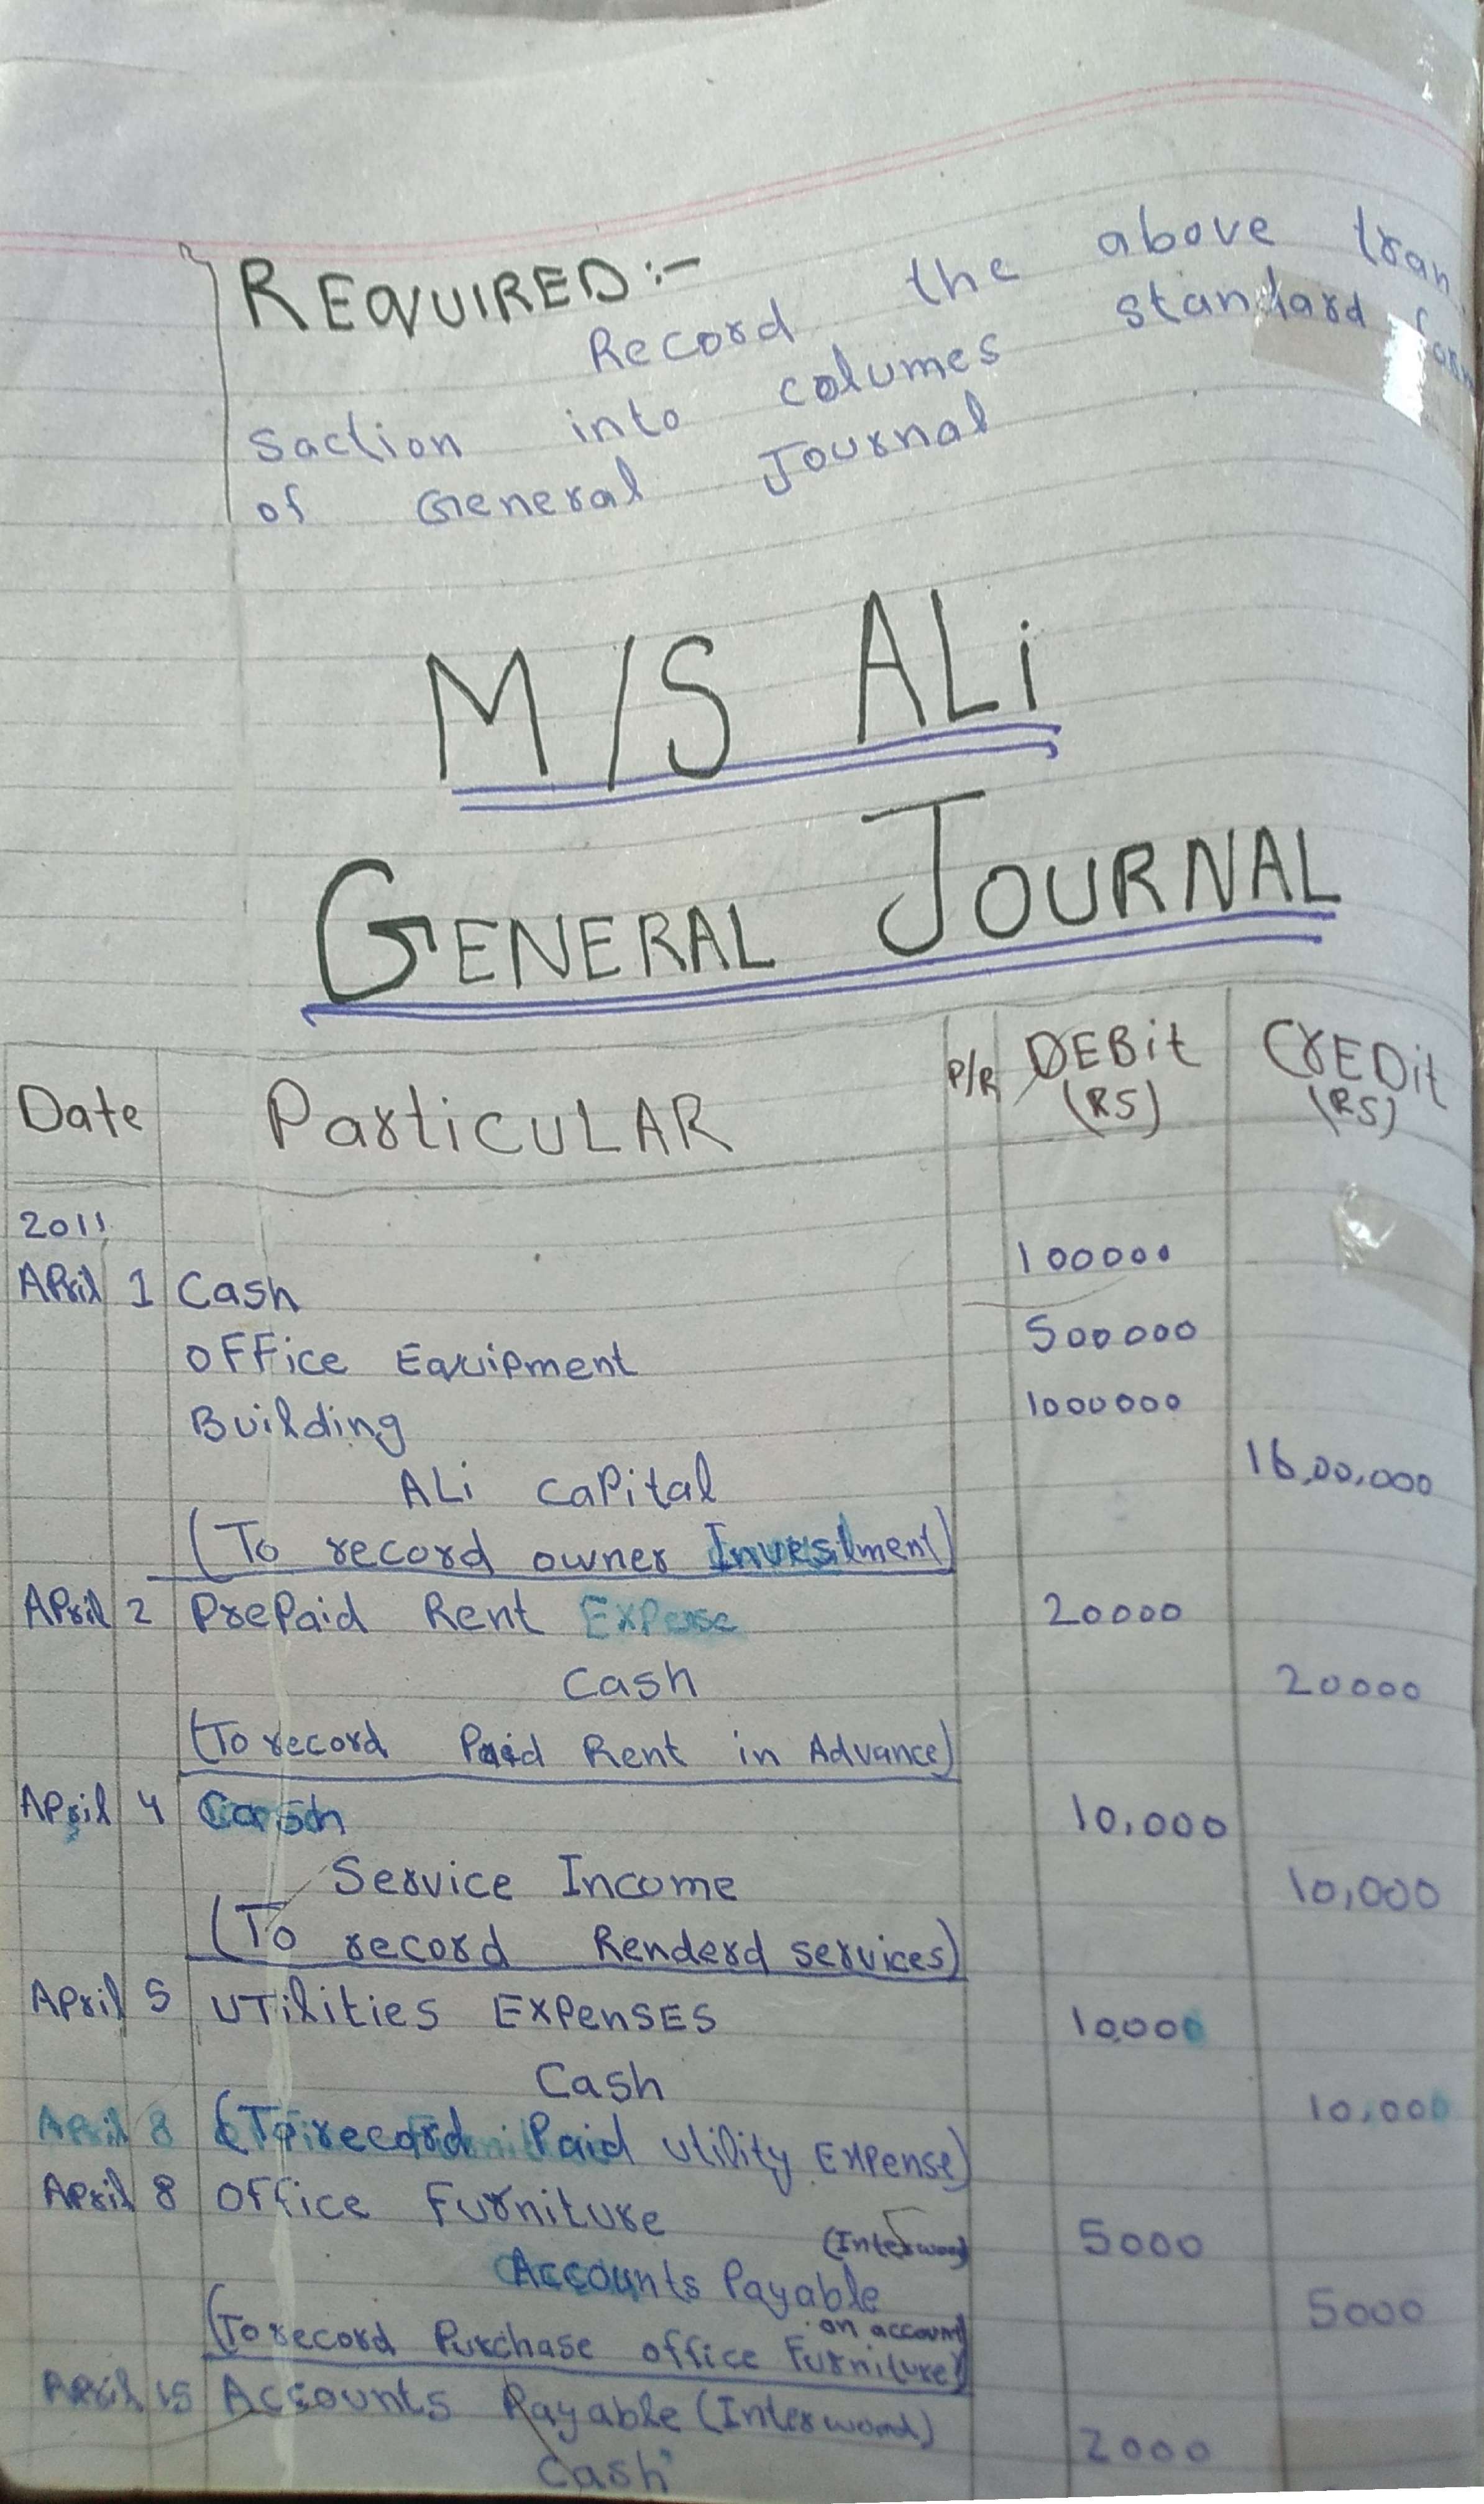 REQUIRED:-
Record the above tran
saction into columes standard form
of General Journal
M/S ALi
GENERAL JOURNAL
Date ParticULAR P/R DEBit (RS) CrEDit (RS)
2011
April 1 Cash 100000
OFFice Equipment 500000
Building 1000000
ALi caPital 16,00,000
(To record owner Investment)
April 2 PrePaid Rent Expense 20000
Cash 20000
(To record Paid Rent in Advance)
April 4 Cash 10,000
Service Income 10,000
(To record Renderd services)
April 5 UTilities EXPenSES 10,000
Cash 10,000
April 8 (To record Paid utility Expense)
April 8 OFFice Furniture 5000
Accounts Payable (Interwood) 5000
(To record Purchase office Furniture) on account
April 15 Accounts Payable (Interwood) 2000
Cash